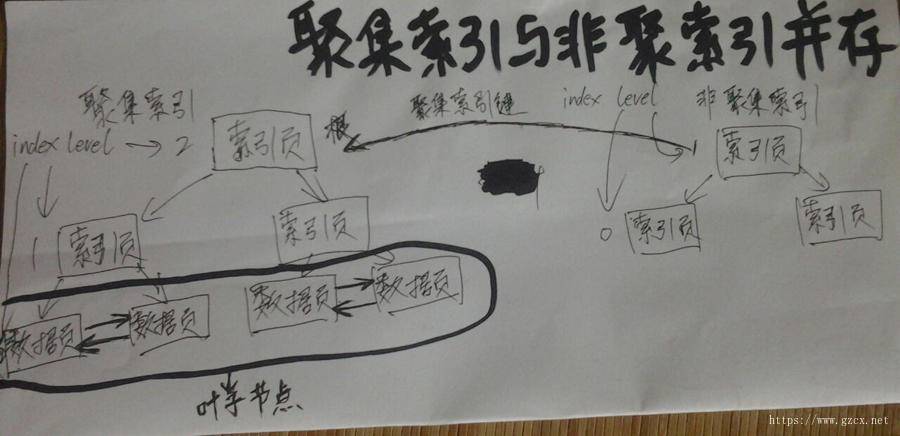 聚集索引与非聚索引并存
聚集索引
聚集索引键
index level
非聚集索引
index level → 2
索引页
根
1
索引页
1
索引页
索引页
0
索引页
索引页
数据页
数据页
数据页
数据页
叶子节点
https://www.gzcx.net